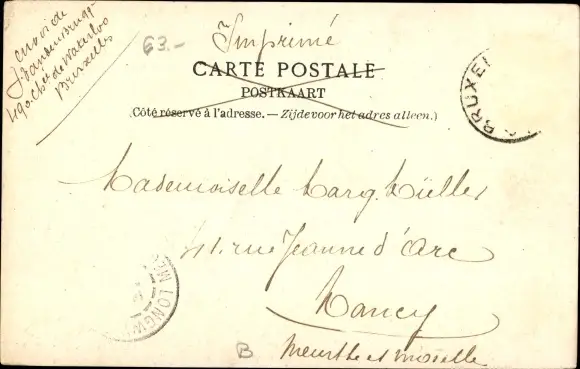 Envoi de
J. Vandenbrugg
490 Chée de Waterloo
Bruxelles
63.-
Imprimé
CARTE POSTALE
POSTKAART
(Côté réservé à l'adresse. — Zijde voor het adres alleen.)
BRUXEL
Mademoiselle Marg. Müller
41. rue Jeanne d'Arc
Nancy
LONGW
B
Meurthe et moselle